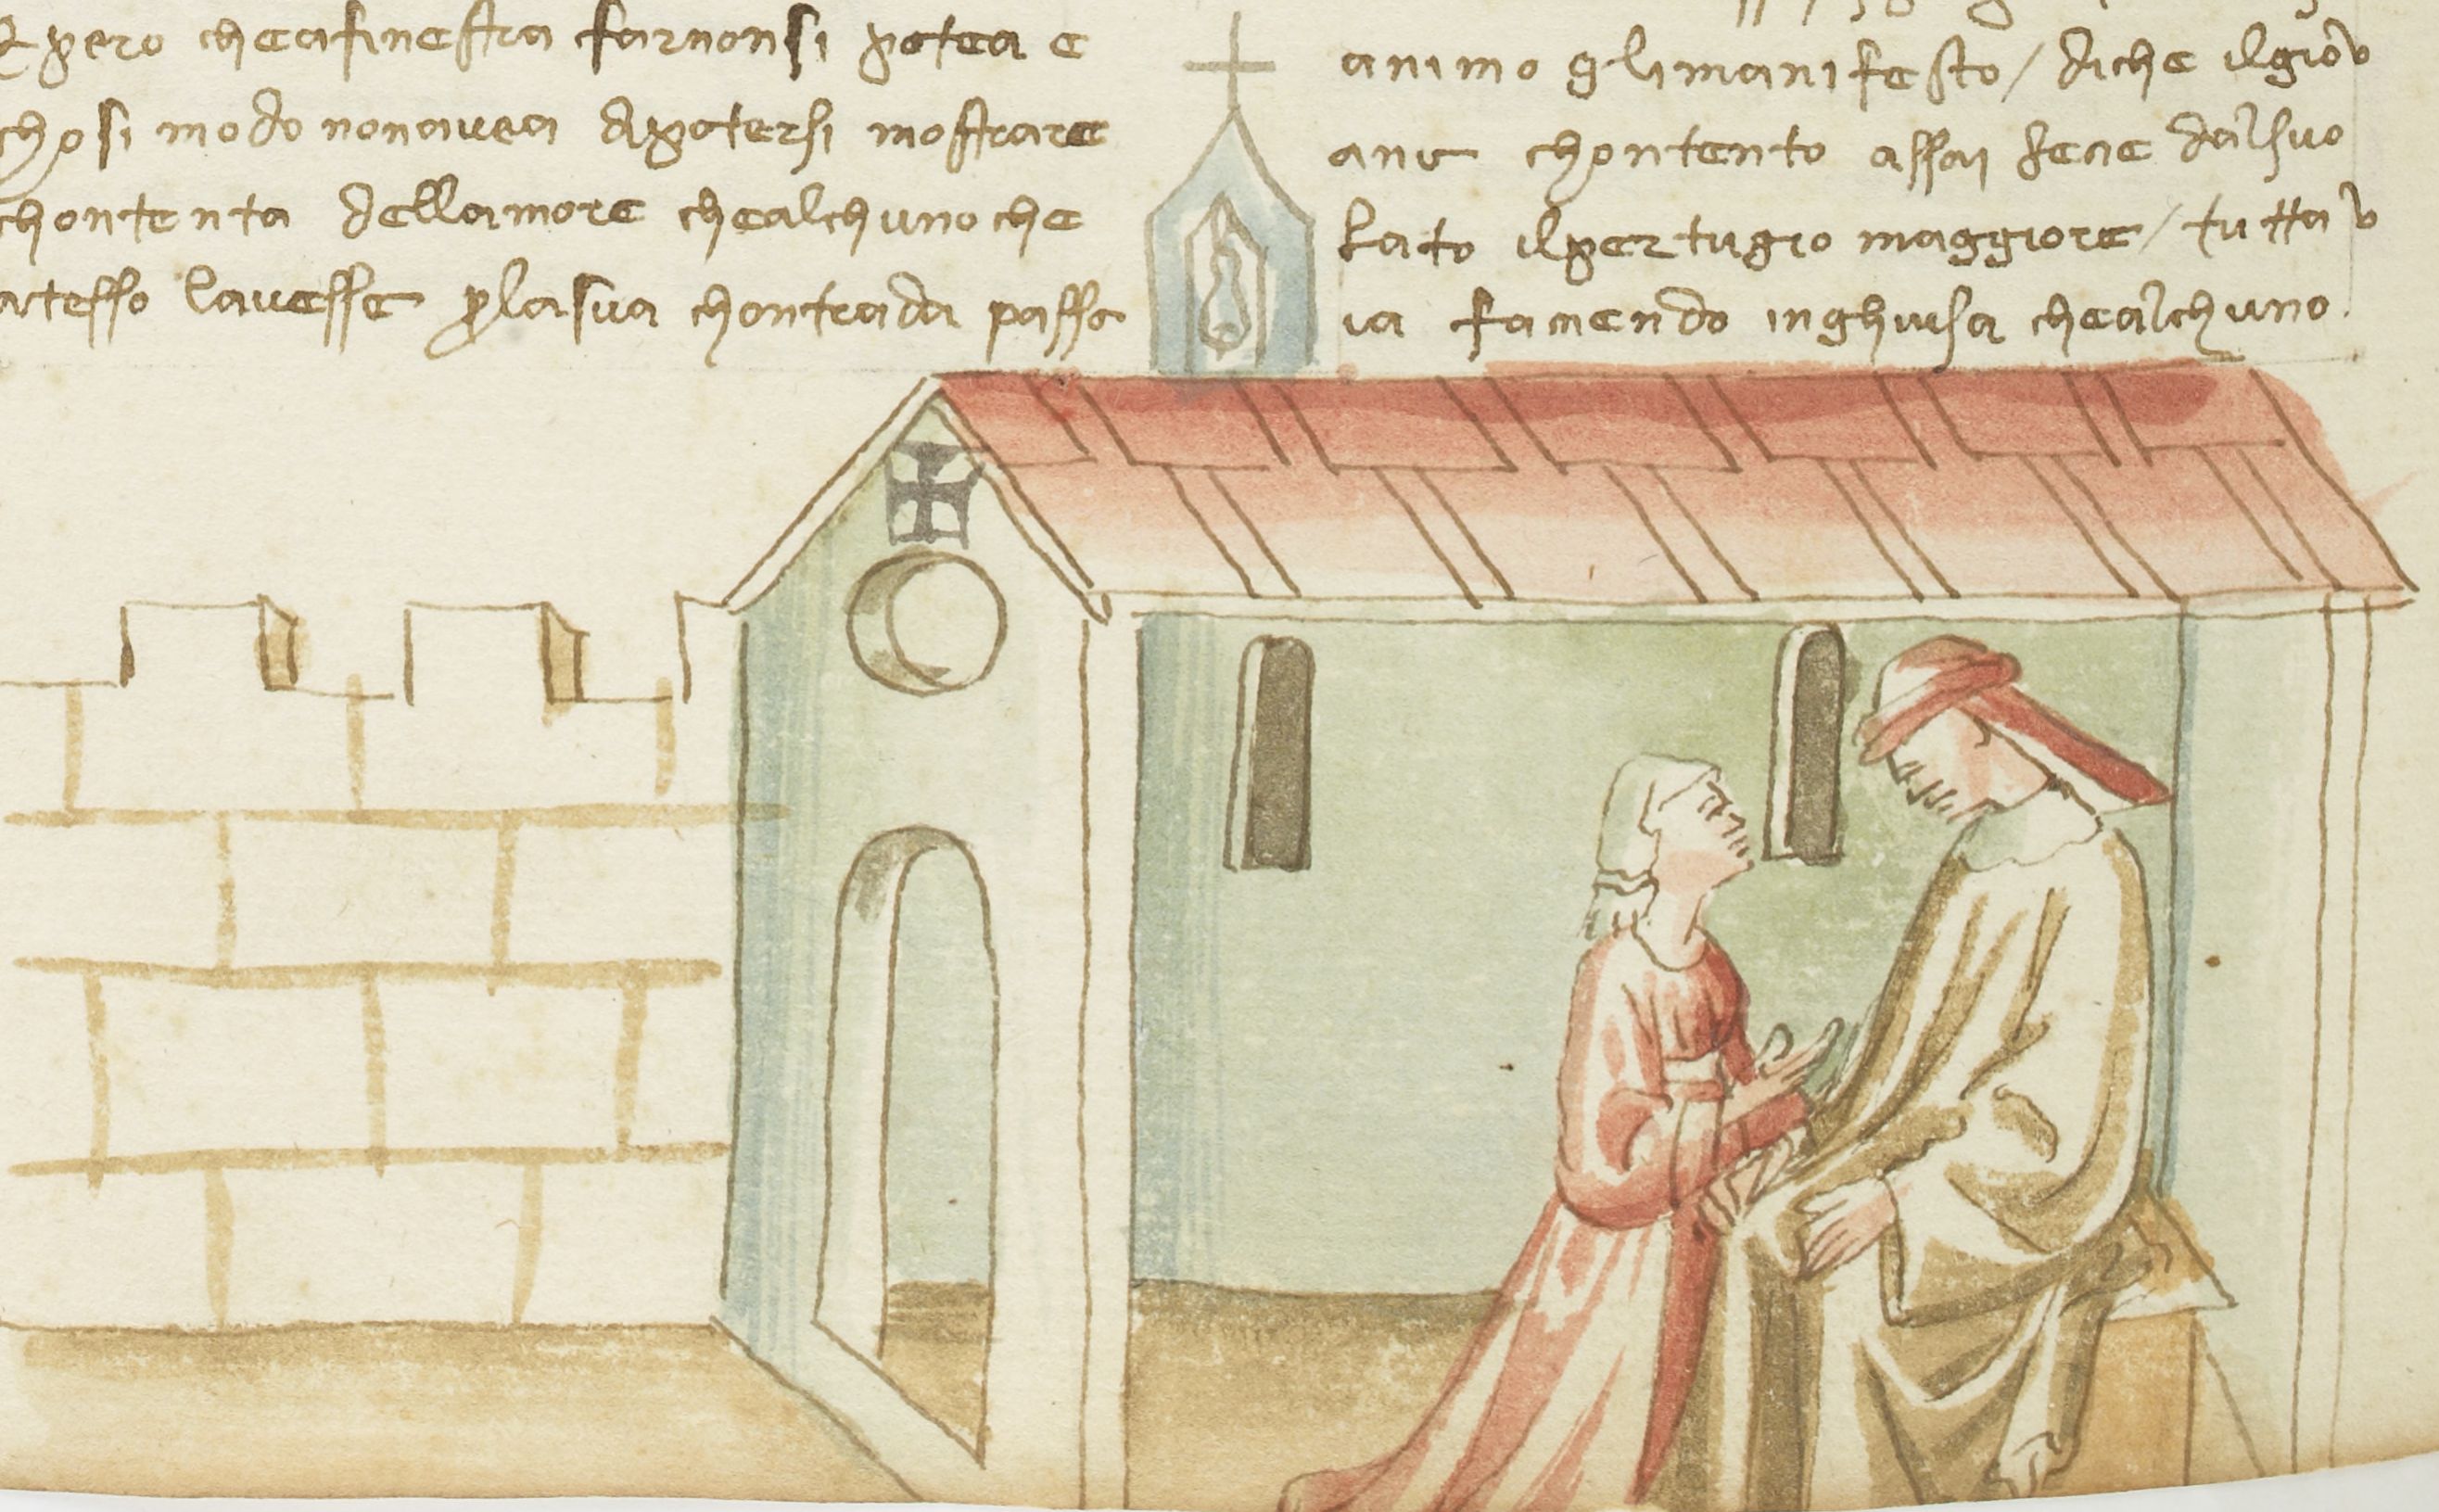 pero cheafinestra farnonsi potea e
chosi modo nonavea dpotersi mostrare
chontenta dellamore chealchunoche
atesso lavesse plasua chontrada passa
animo glimanifesto / diche ilgiov
ane chontento assai fecie dalsuo
lato ilpertugio maggiore / tuttav
ia faciendo inghuisa chealchuno